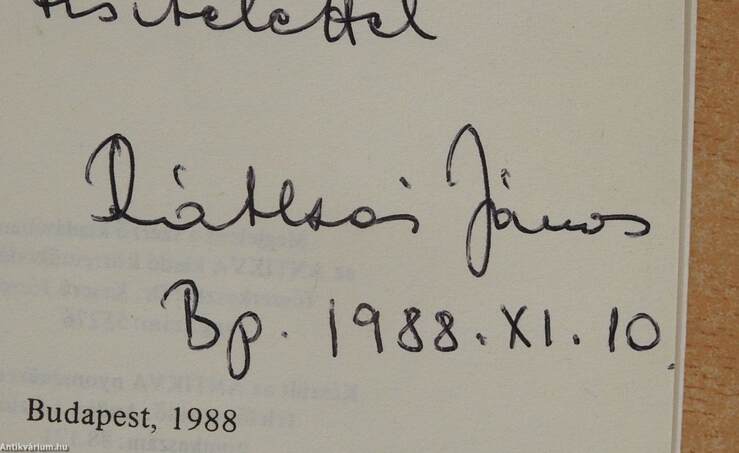 tisztelettel
Rátkai János
Bp. 1988. XI. 10
Budapest, 1988
Antikvárium.hu